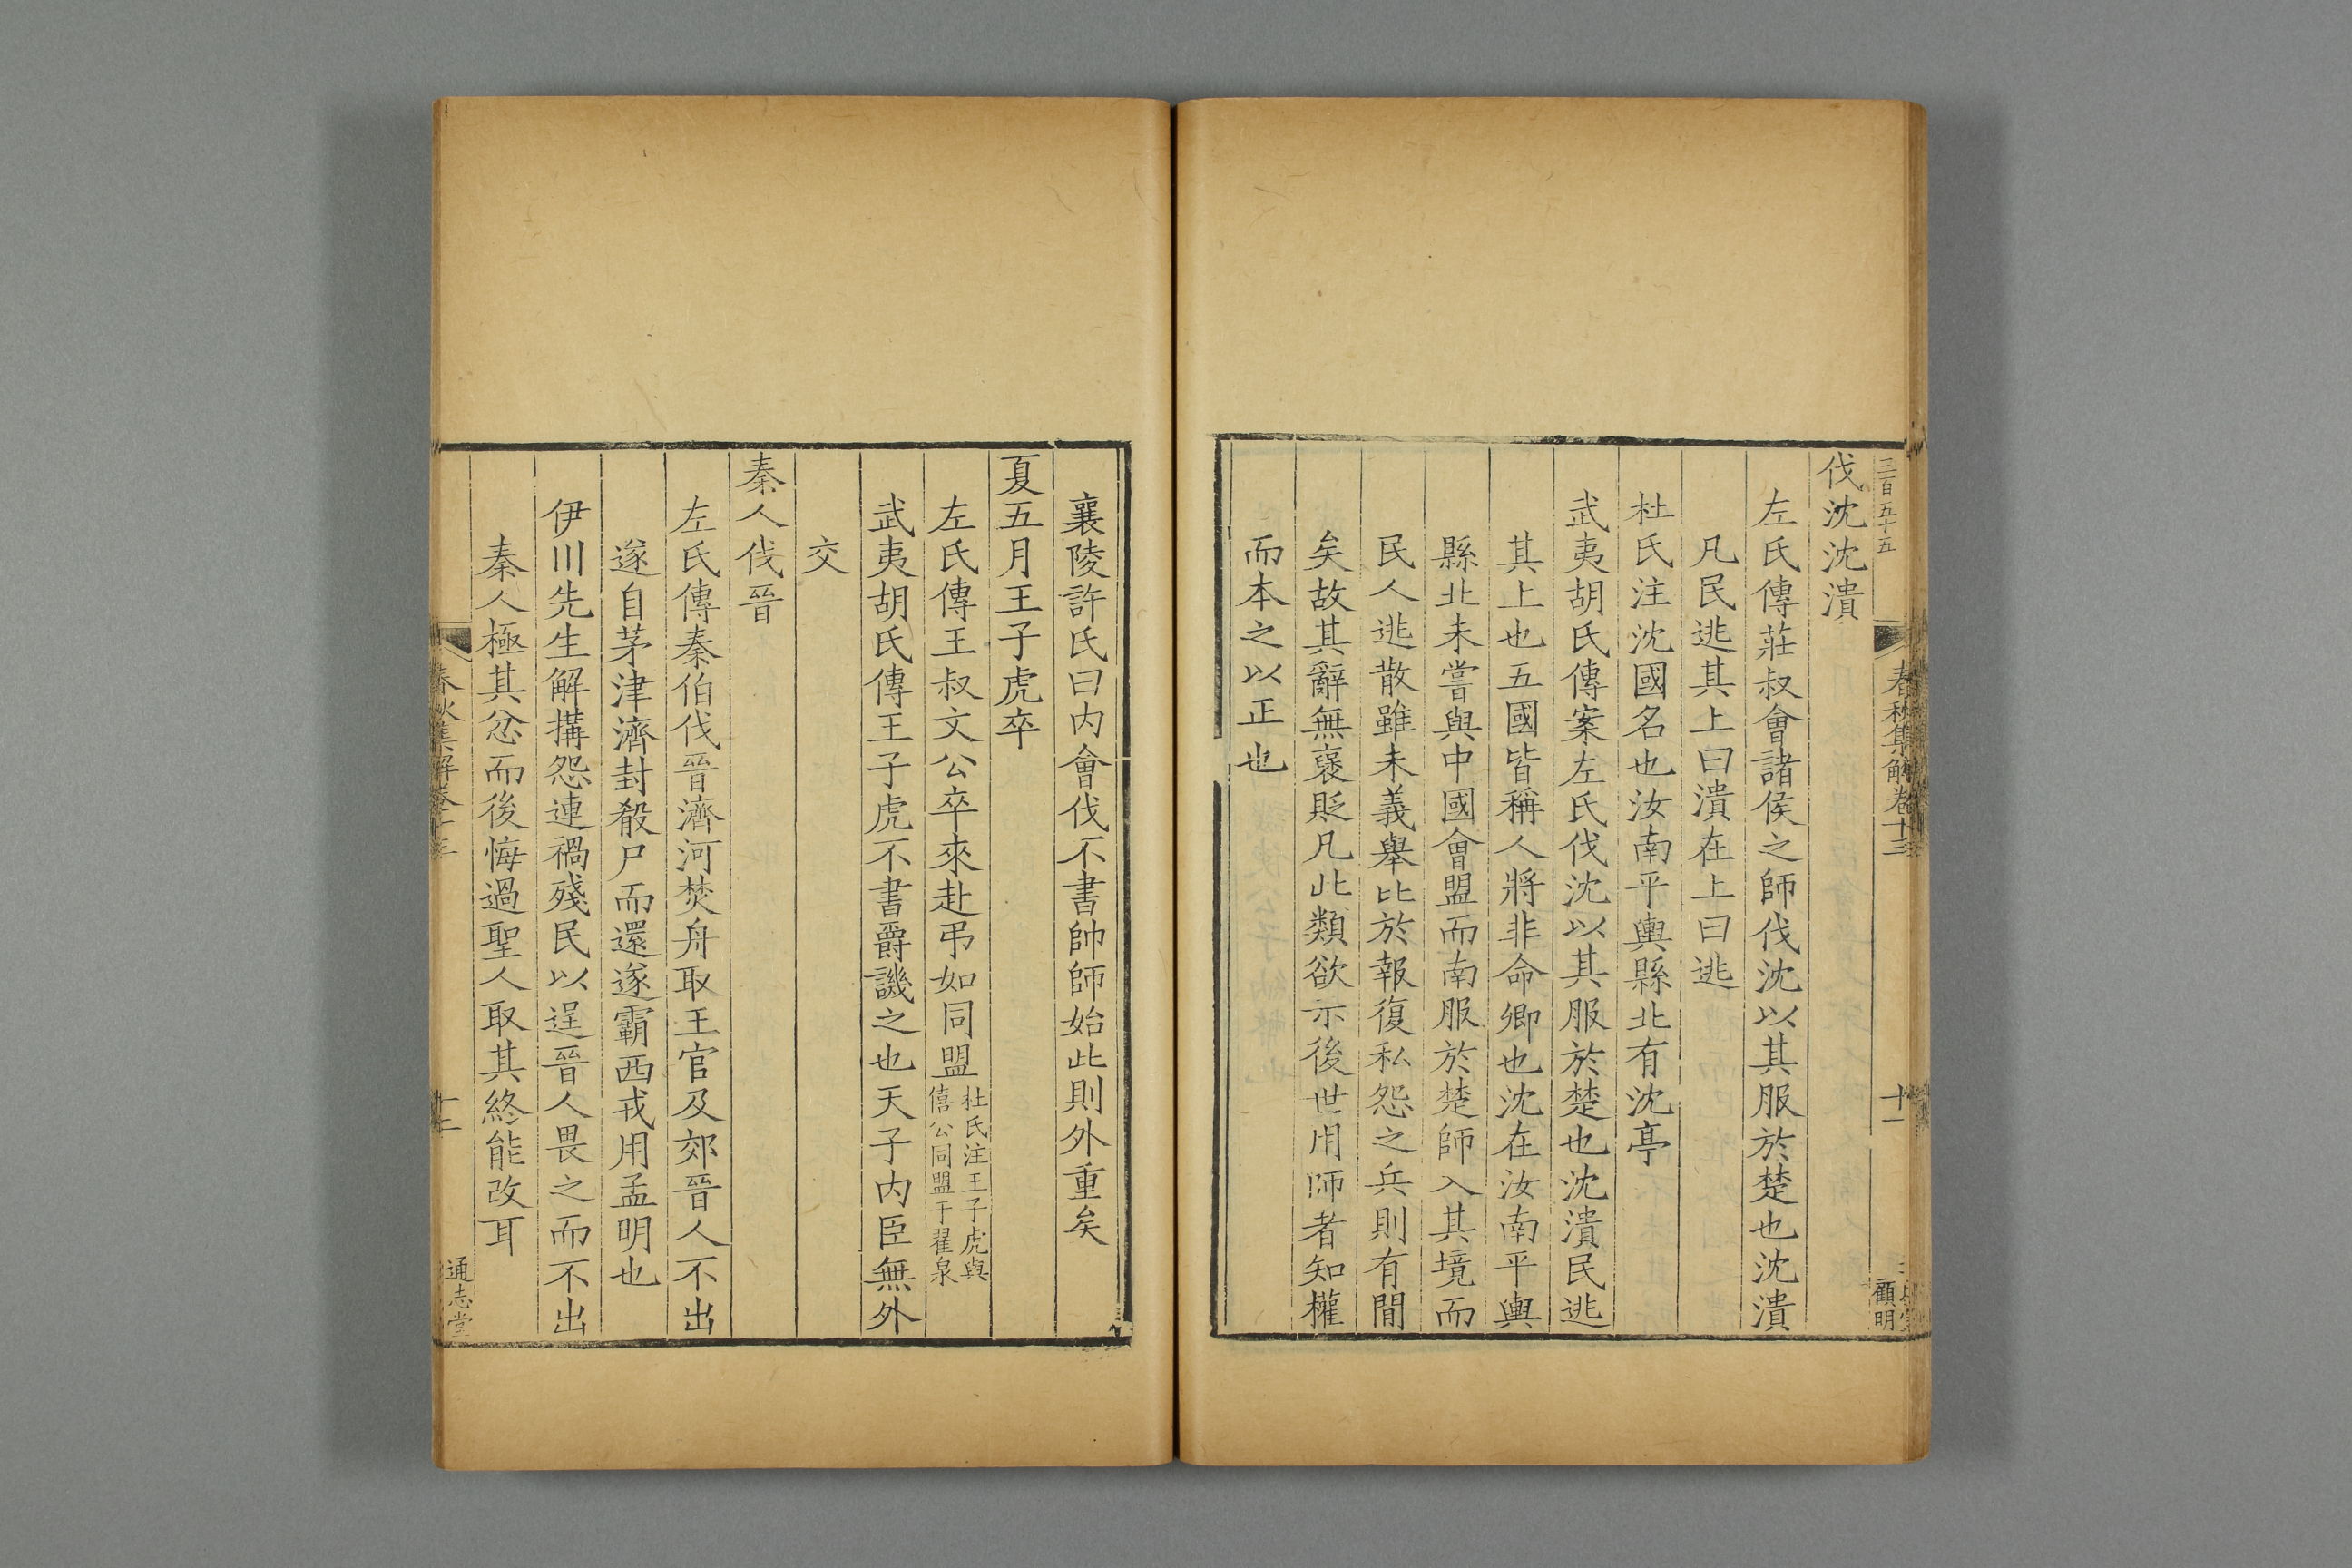 三百五十五
春秋集解卷十三
十一
顧明
伐沈沈潰
左氏傳莊叔會諸侯之師伐沈以其服於楚也沈潰
凡民逃其上曰潰在上曰逃
杜氏注沈國名也汝南平輿縣北有沈亭
武夷胡氏傳案左氏伐沈以其服於楚也沈潰民逃
其上也五國皆稱人將非命卿也沈在汝南平輿
縣北未嘗與中國會盟而南服於楚師入其境而
民人逃散雖未義舉比於報復私怨之兵則有間
矣故其辭無褒貶凡此類欲示後世用師者知權
而本之以正也
襄陵許氏曰内會伐不書帥師始此則外重矣
夏五月王子虎卒
左氏傳王叔文公卒來赴弔如同盟杜氏注王子虎與
僖公同盟于翟泉
武夷胡氏傳王子虎不書爵譏之也天子内臣無外
交
秦人伐晉
左氏傳秦伯伐晉濟河焚舟取王官及郊晉人不出
遂自茅津濟封殽尸而還遂霸西戎用孟明也
伊川先生解搆怨連禍殘民以逞晉人畏之而不出
秦人極其忿而後悔過聖人取其終能改耳
春秋集解卷十三
十二
通志堂